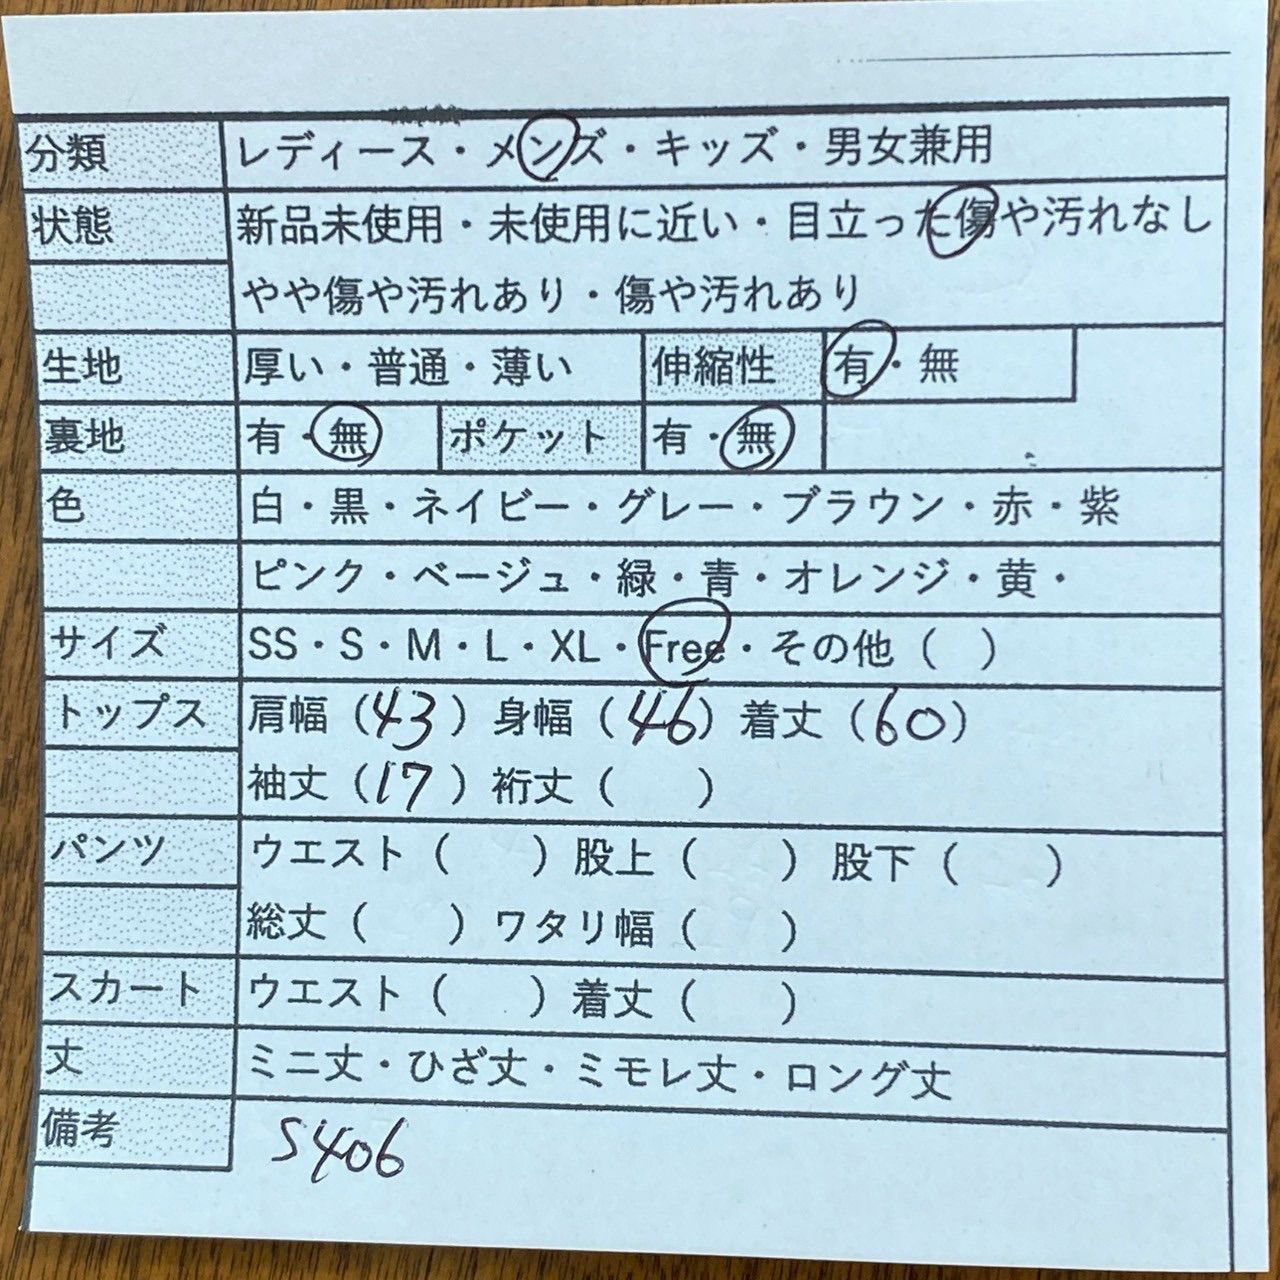 分類 レディース・メンズ・キッズ・男女兼用
状態 新品未使用・未使用に近い・目立った傷や汚れなし
やや傷や汚れあり・傷や汚れあり
生地 厚い・普通・薄い 伸縮性 有・無
裏地 有・無 ポケット 有・無
色 白・黒・ネイビー・グレー・ブラウン・赤・紫
ピンク・ベージュ・緑・青・オレンジ・黄・
サイズ SS・S・M・L・XL・Free・その他（ ）
トップス 肩幅（43）身幅（46）着丈（60）
袖丈（17）裄丈（ ）
パンツ ウエスト（ ）股上（ ）股下（ ）
総丈（ ）ワタリ幅（ ）
スカート ウエスト（ ）着丈（ ）
丈 ミニ丈・ひざ丈・ミモレ丈・ロング丈
備考 S406